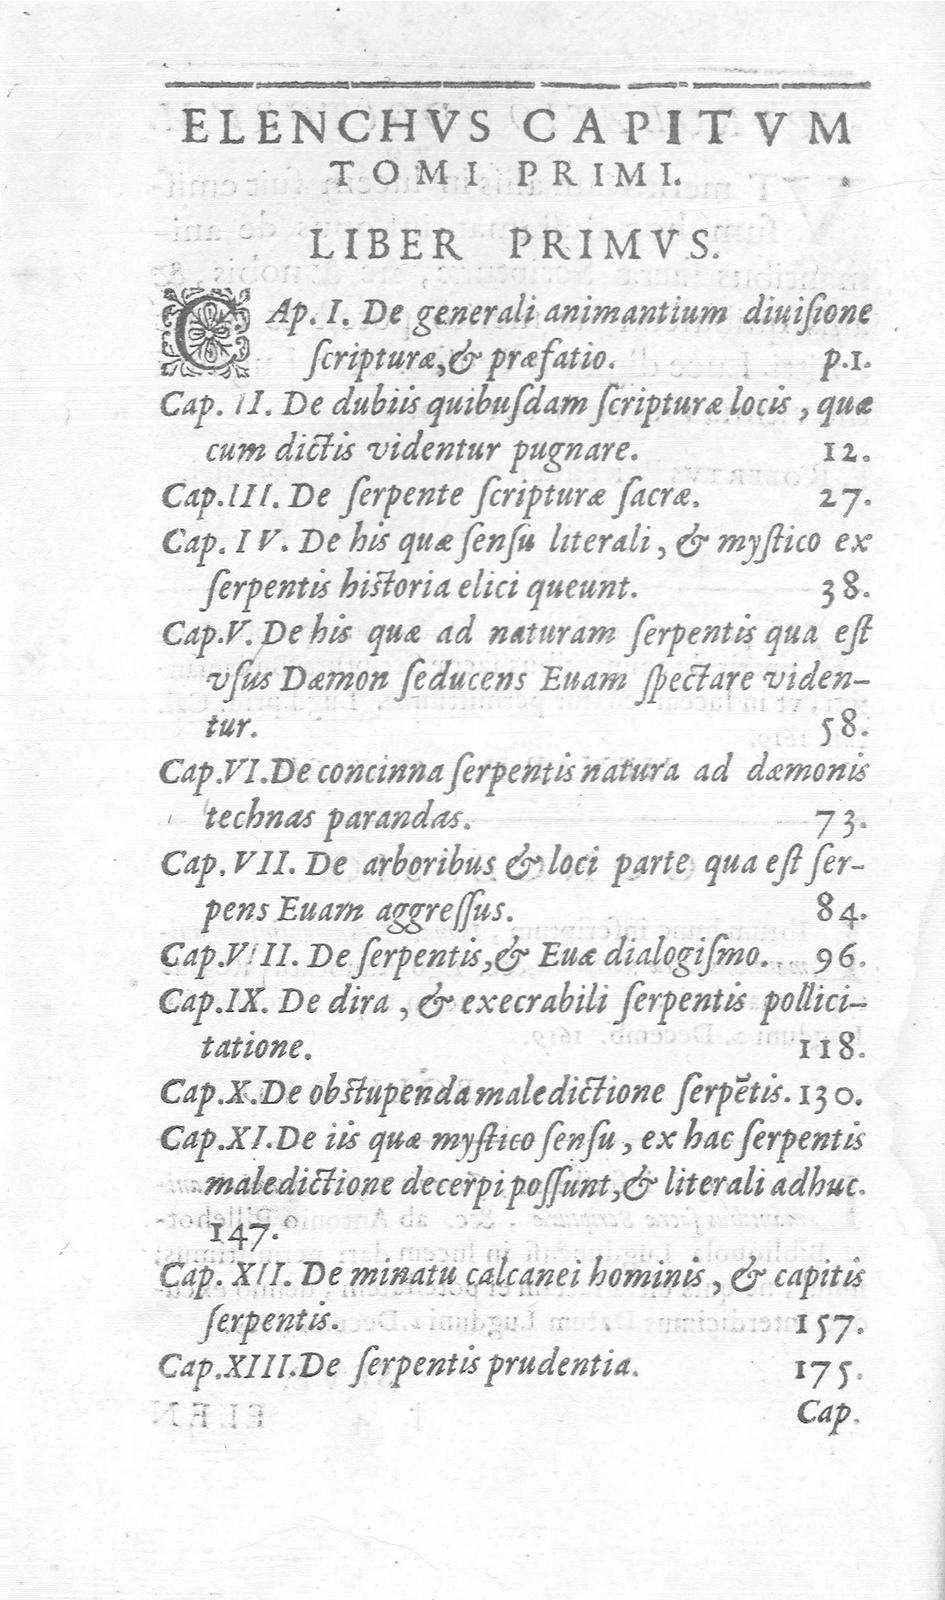 ELENCHVS CAPITVM
TOMI PRIMI.
LIBER PRIMVS.
CAp. I. De generali animantium diuiſione
ſcripturæ, & præfatio. p.1.
Cap. II. De dubiis quibuſdam ſcripturæ locis, quæ
cum dictis videntur pugnare. 12.
Cap. III. De ſerpente ſcripturæ ſacræ. 27.
Cap. IV. De his quæ ſenſu literali, & myſtico ex
ſerpentis historia elici queunt. 38.
Cap. V. De his quæ ad naturam ſerpentis qua eſt
vſus Dæmon ſeducens Euam ſpectare viden-
tur. 58.
Cap. VI. De concinna ſerpentis natura ad dæmonis
technas parandas. 73.
Cap. VII. De arboribus & loci parte qua eſt ſer-
pens Euam aggreſſus. 84.
Cap. VIII. De ſerpentis, & Euæ dialogiſmo. 96.
Cap. IX. De dira, & execrabili ſerpentis pollici-
tatione. 118.
Cap. X. De obstupenda maledictione ſerpētis. 130.
Cap. XI. De iis quæ myſtico ſenſu, ex hac ſerpentis
maledictione decerpi poſſunt, & literali adhuc.
147.
Cap. XII. De minatu calcanei hominis, & capitis
ſerpentis. 157.
Cap. XIII. De ſerpentis prudentia. 175.
Cap.